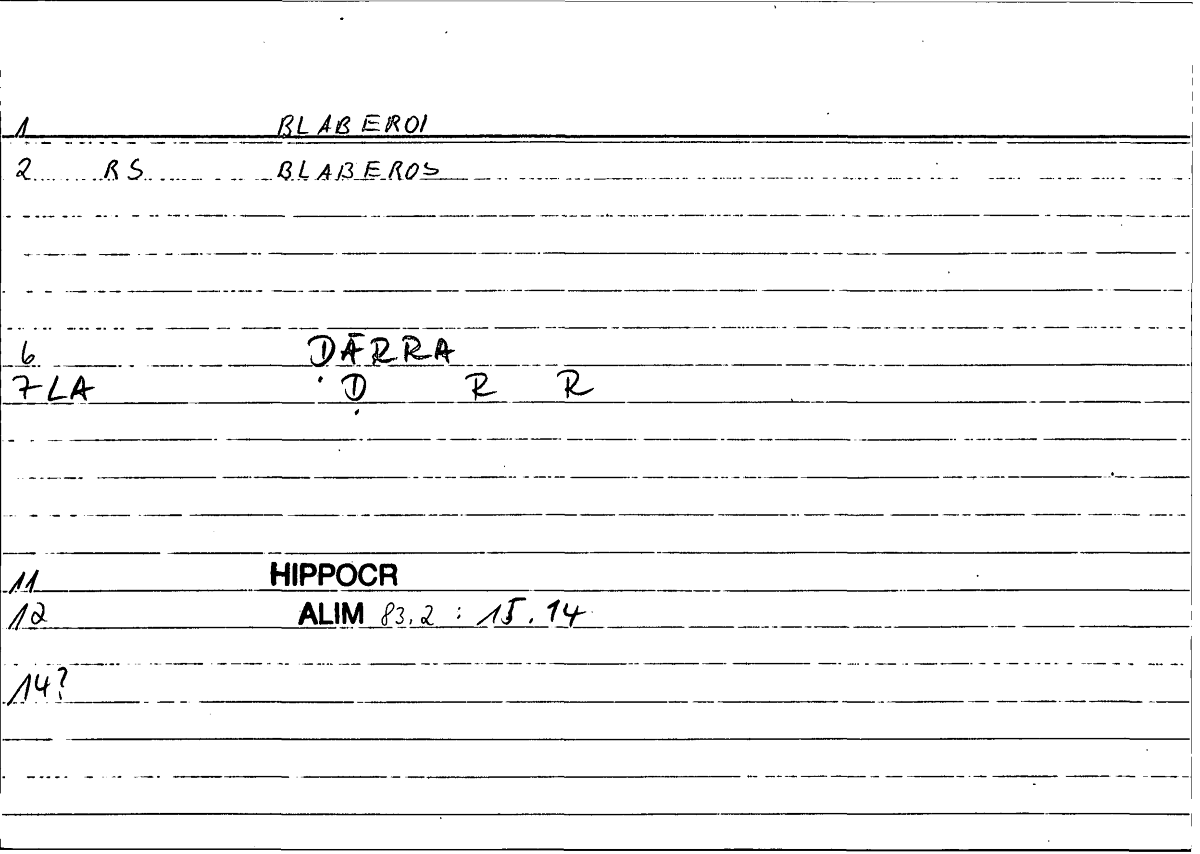 1 BLABEROI
2 RS BLABEROS
6 ḌĀRRA
7 LA Ḍ R R
11 HIPPOCR
12 ALIM 83.2 : 15.14
14?